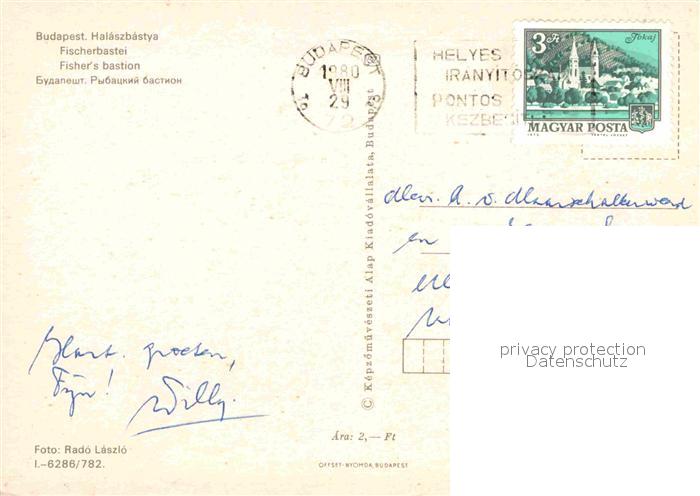 Budapest. Halászbástya
Fischerbastei
Fisher's bastion
Будапешт. Рыбацкий бастион
BUDAPEST
1980
VIII
29
72
HELYES
IRÁNYÍTÓ
PONTOS
KÉZBESÍT
3 Ft
Tokaj
MAGYAR POSTA
© Képzőművészeti Alap Kiadóvállalata, Budapest
Mevr. A. v.
en
privacy protection
Datenschutz
Hart. groeten,
Fijn!
Willy.
Ára: 2,— Ft
Foto: Radó László
I.—6286/782.
OFFSET-NYOMDA, BUDAPEST